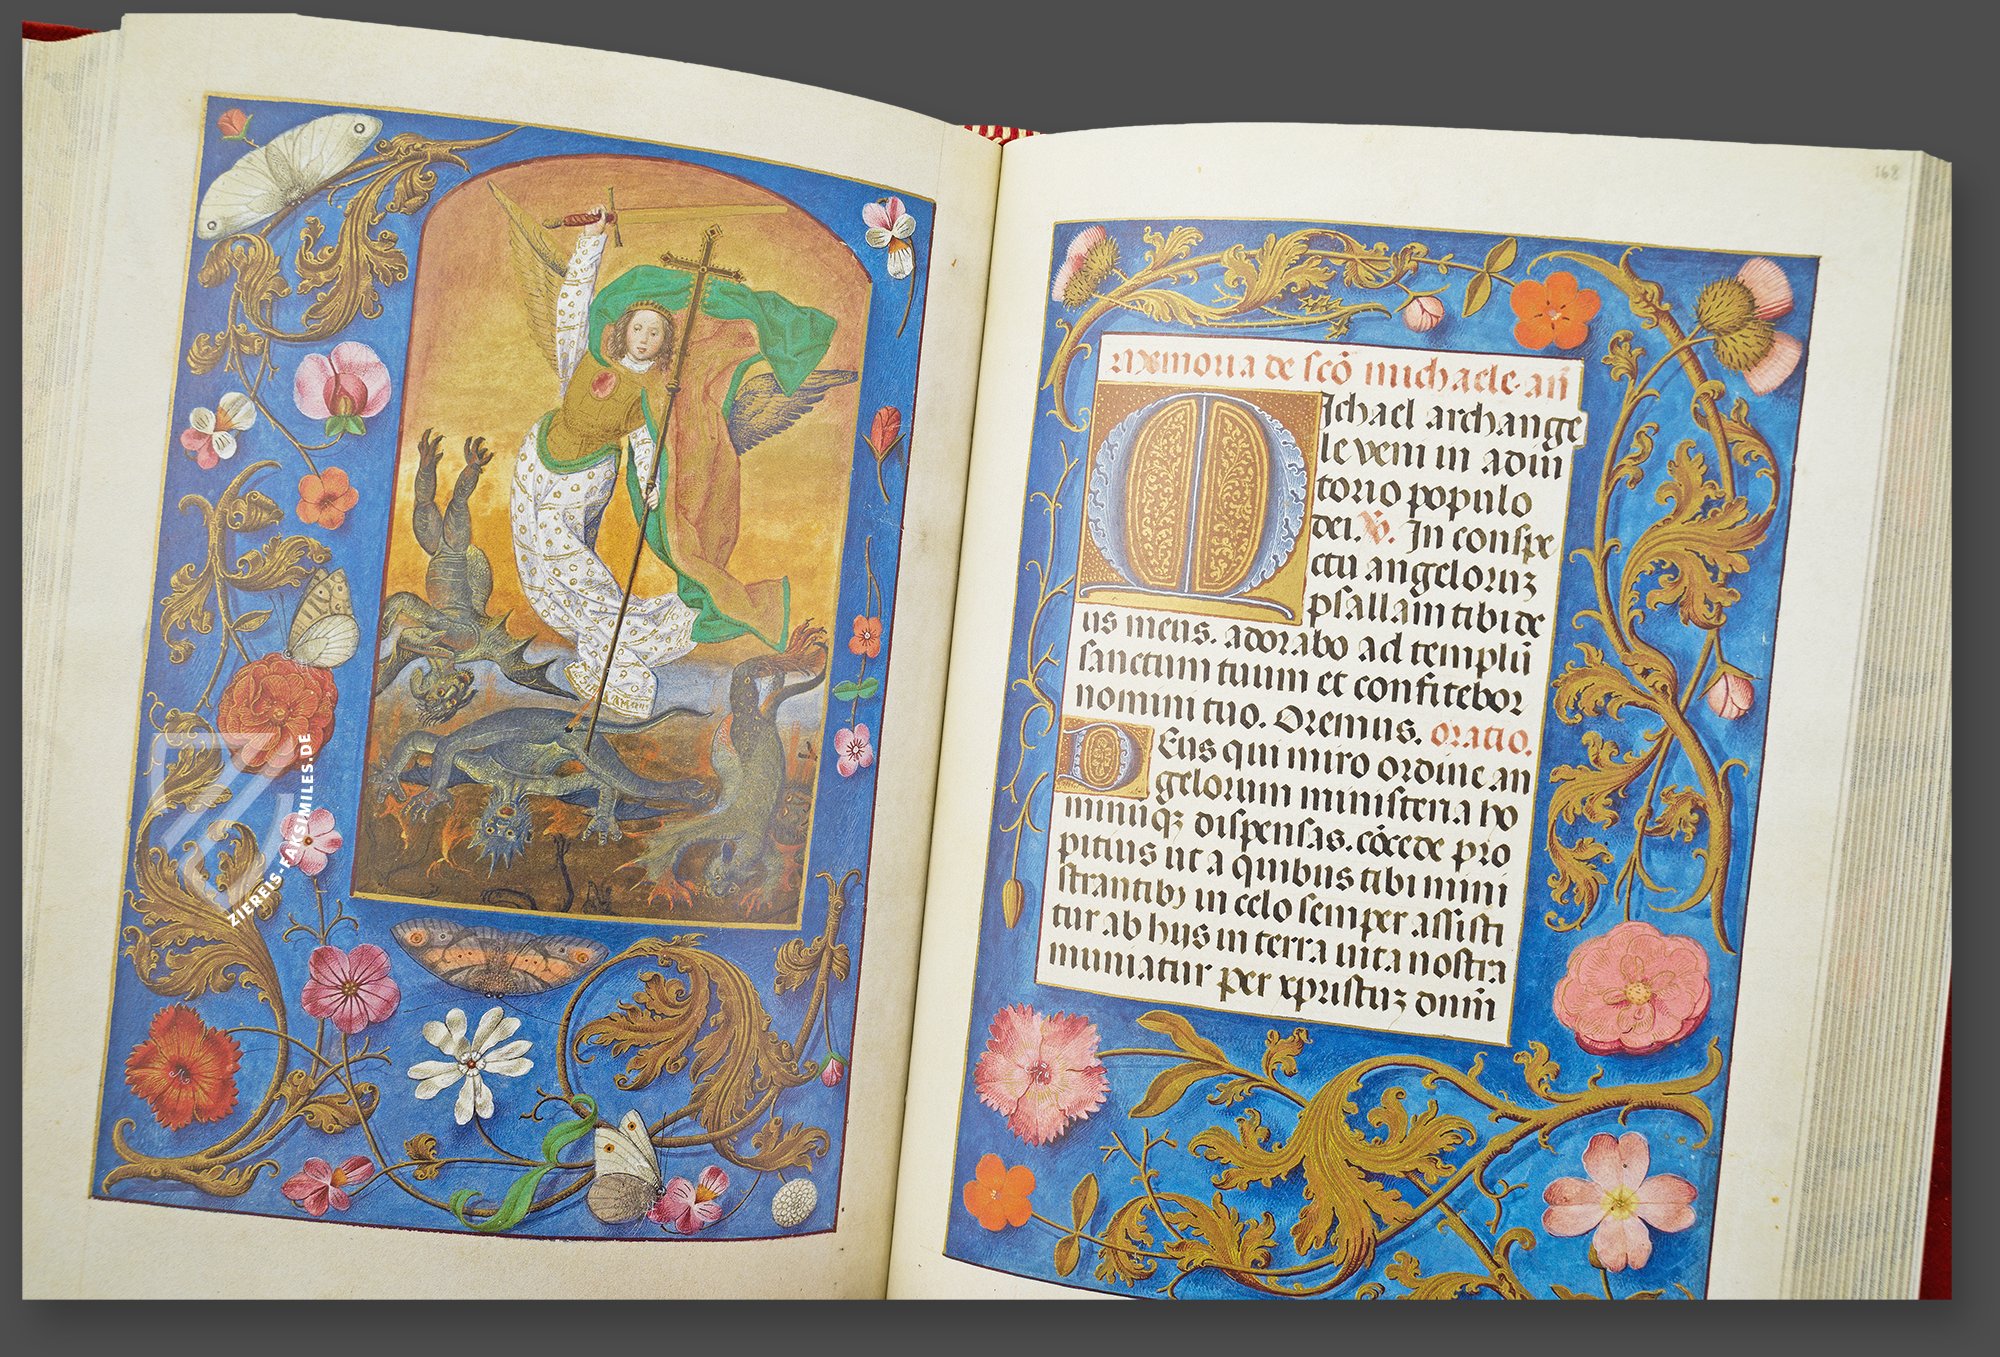 ZIEREIS-FAKSIMILES.DE
168
Memoria de scō michaele. añ
Michael archange
le veni in adiu
torio populo
dei. V̄. In conspe
ctu angelorūꝫ
psallam tibi de
us meus. adorabo ad templū
sanctum tuum et confitebor
nomini tuo. Oremus. oratio.
Deus qui miro ordine an
gelorum ministeria ho
minūqꝫ dispensas. cōcede pro
pitius ut a quibus tibi mini
strantibꝫ in celo semper assisti
tur ab hijs in terra uita nostra
muniatur per xpristuꝫ dnm̄